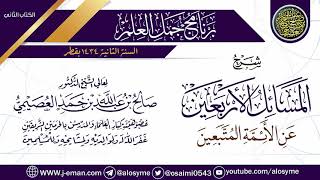 برنامج جمل العلم
السنة الثانية ١٤٣٤ بقطر
الكتاب الثاني
شرح
المسائل الأربعين
عن الأئمة المتبعين
لمعالي الشيخ الدكتور
صالح بن عبد الله بن حمد العصيمي
عضو هيئة كبار العلماء والمدرس بالحرمين الشريفين
غفر الله له ولوالديه ولمشايخه وللمسلمين
www.j-eman.com
@alosyme
@osaimi0543
youtube.com/alosyme